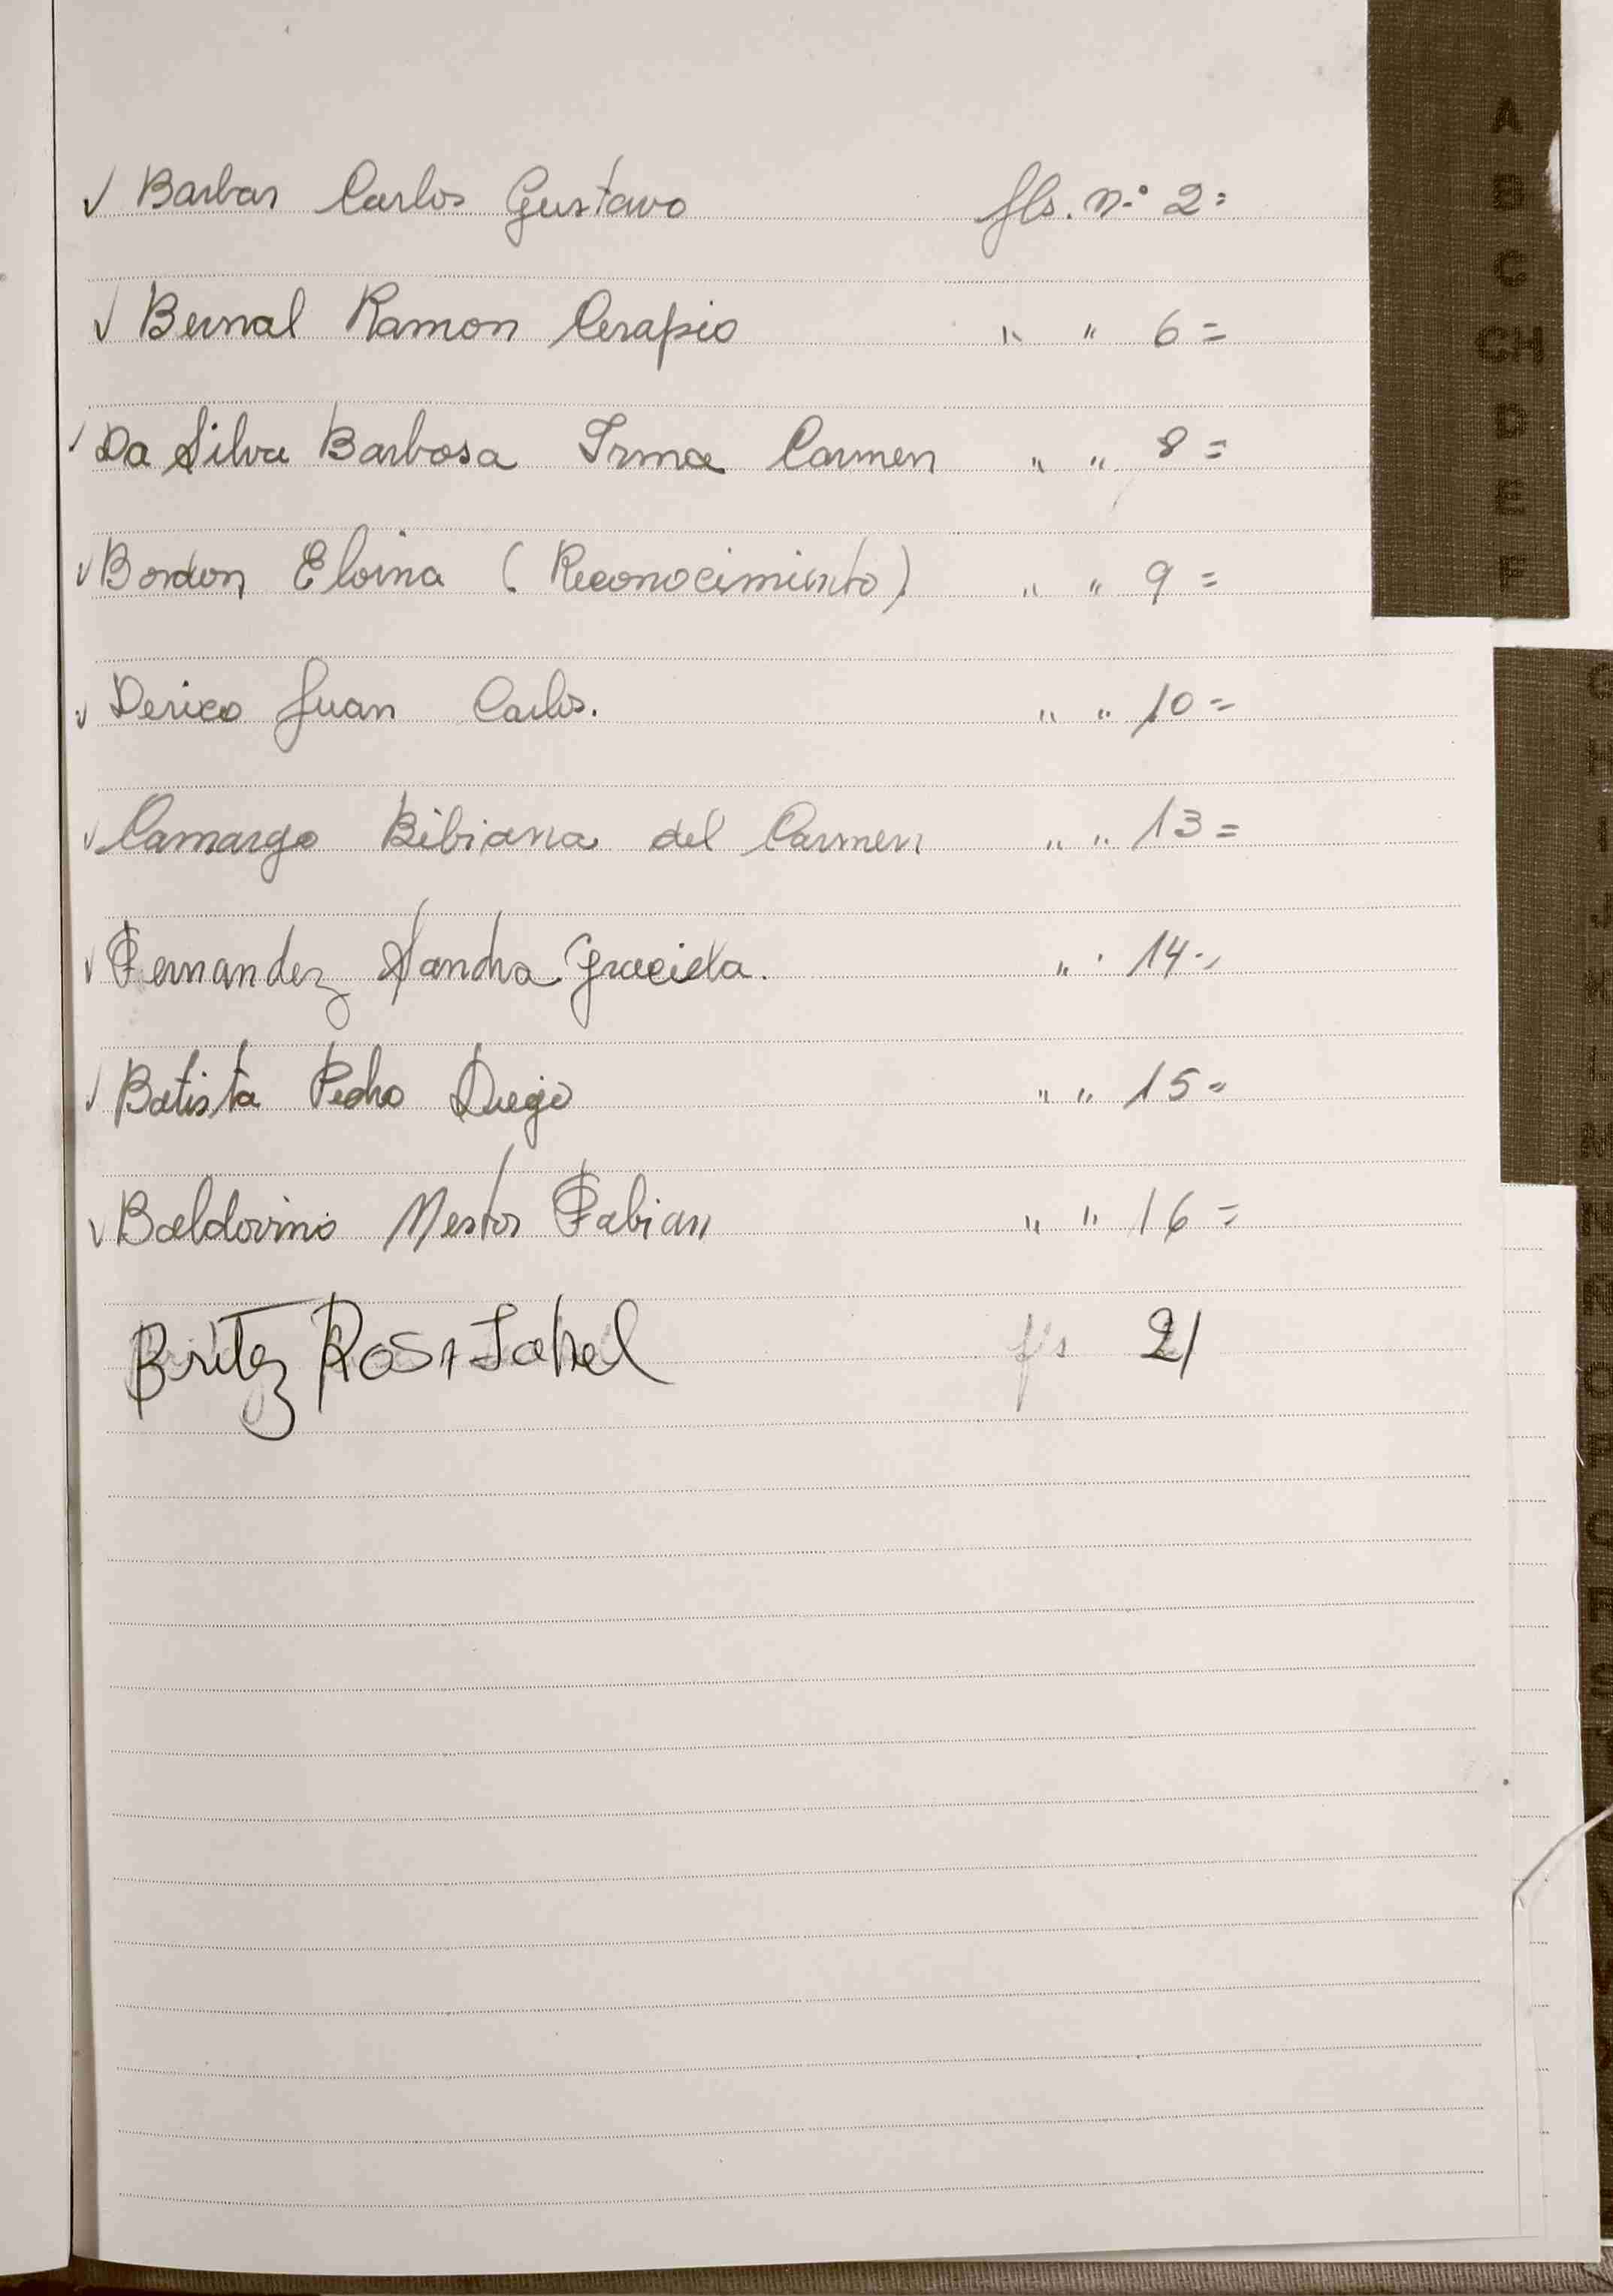 ✓ Barbas Carlos Gustavo fls. n.° 2=
✓ Bernal Ramon Cerapio " " 6=
✓ Da Silva Barbosa Irma Carmen " " 8=
✓ Bordon Eloina (Reconocimiento) " " 9=
✓ Derico Juan Carlos. " " 10=
✓ Camargo Bibiana del Carmen " " 13=
✓ Fernandez Sandra Graciela. " " 14=
✓ Batista Pedro Diego " " 15=
✓ Baldovino Nestor Fabian " " 16=
Britez Rosa Isabel f/s 21
A
B
C
CH
D
E
F
G
H
I
J
K
L
M